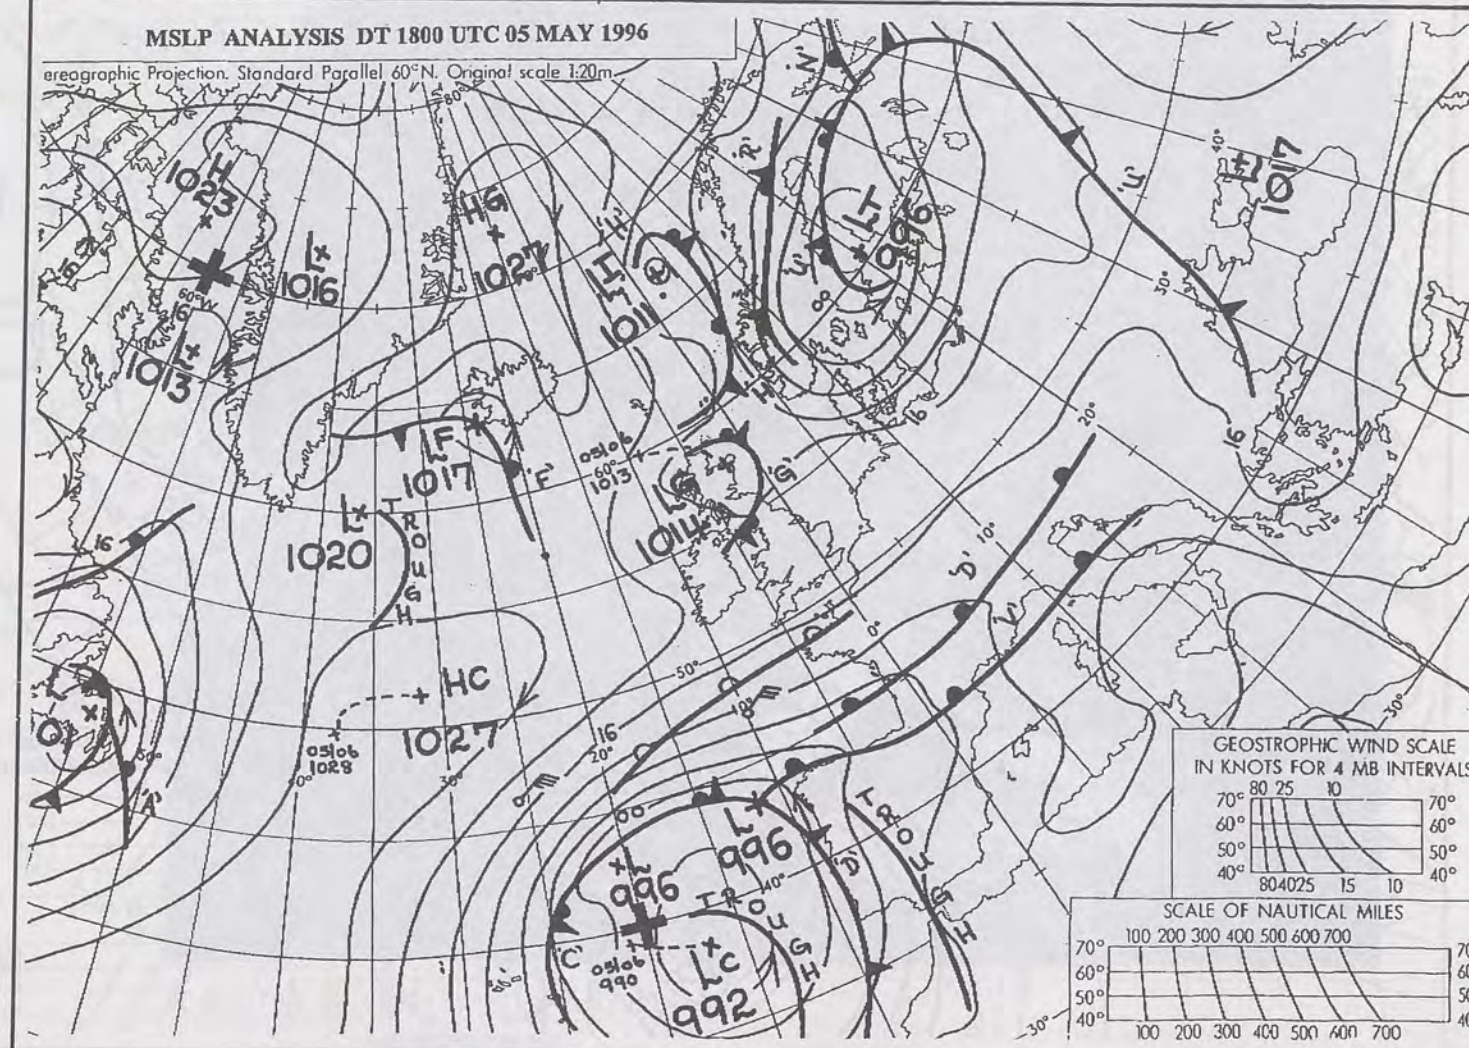 MSLP ANALYSIS DT 1800 UTC 05 MAY 1996
ereographic Projection. Standard Parallel 60°N. Original scale 1:20m
80°
H
1023
L
1016
60°W
L
1013
HG
1027
'H'
HI
1011
'N'
'R'
'U'
LT
996
'U'
40°
H
1017
30°
20°
10°
0°
LF
1017
'F'
05/06
60°
1013
LG
1014
'G'
16
16
16
L
1020
TROUGH
HC
1027
05/06
1028
50°
16
20°
30°
10°
'D'
'V'
'A'
L
996
L
996
40°
TROUGH
TROUGH
'D'
'C'
05/06
990
LC
992
30°
30°
GEOSTROPHIC WIND SCALE
IN KNOTS FOR 4 MB INTERVALS
80 25 10
70° 70°
60° 60°
50° 50°
40° 40°
80 40 25 15 10
SCALE OF NAUTICAL MILES
100 200 300 400 500 600 700
70°
60°
50°
40°
100 200 300 400 500 600 700